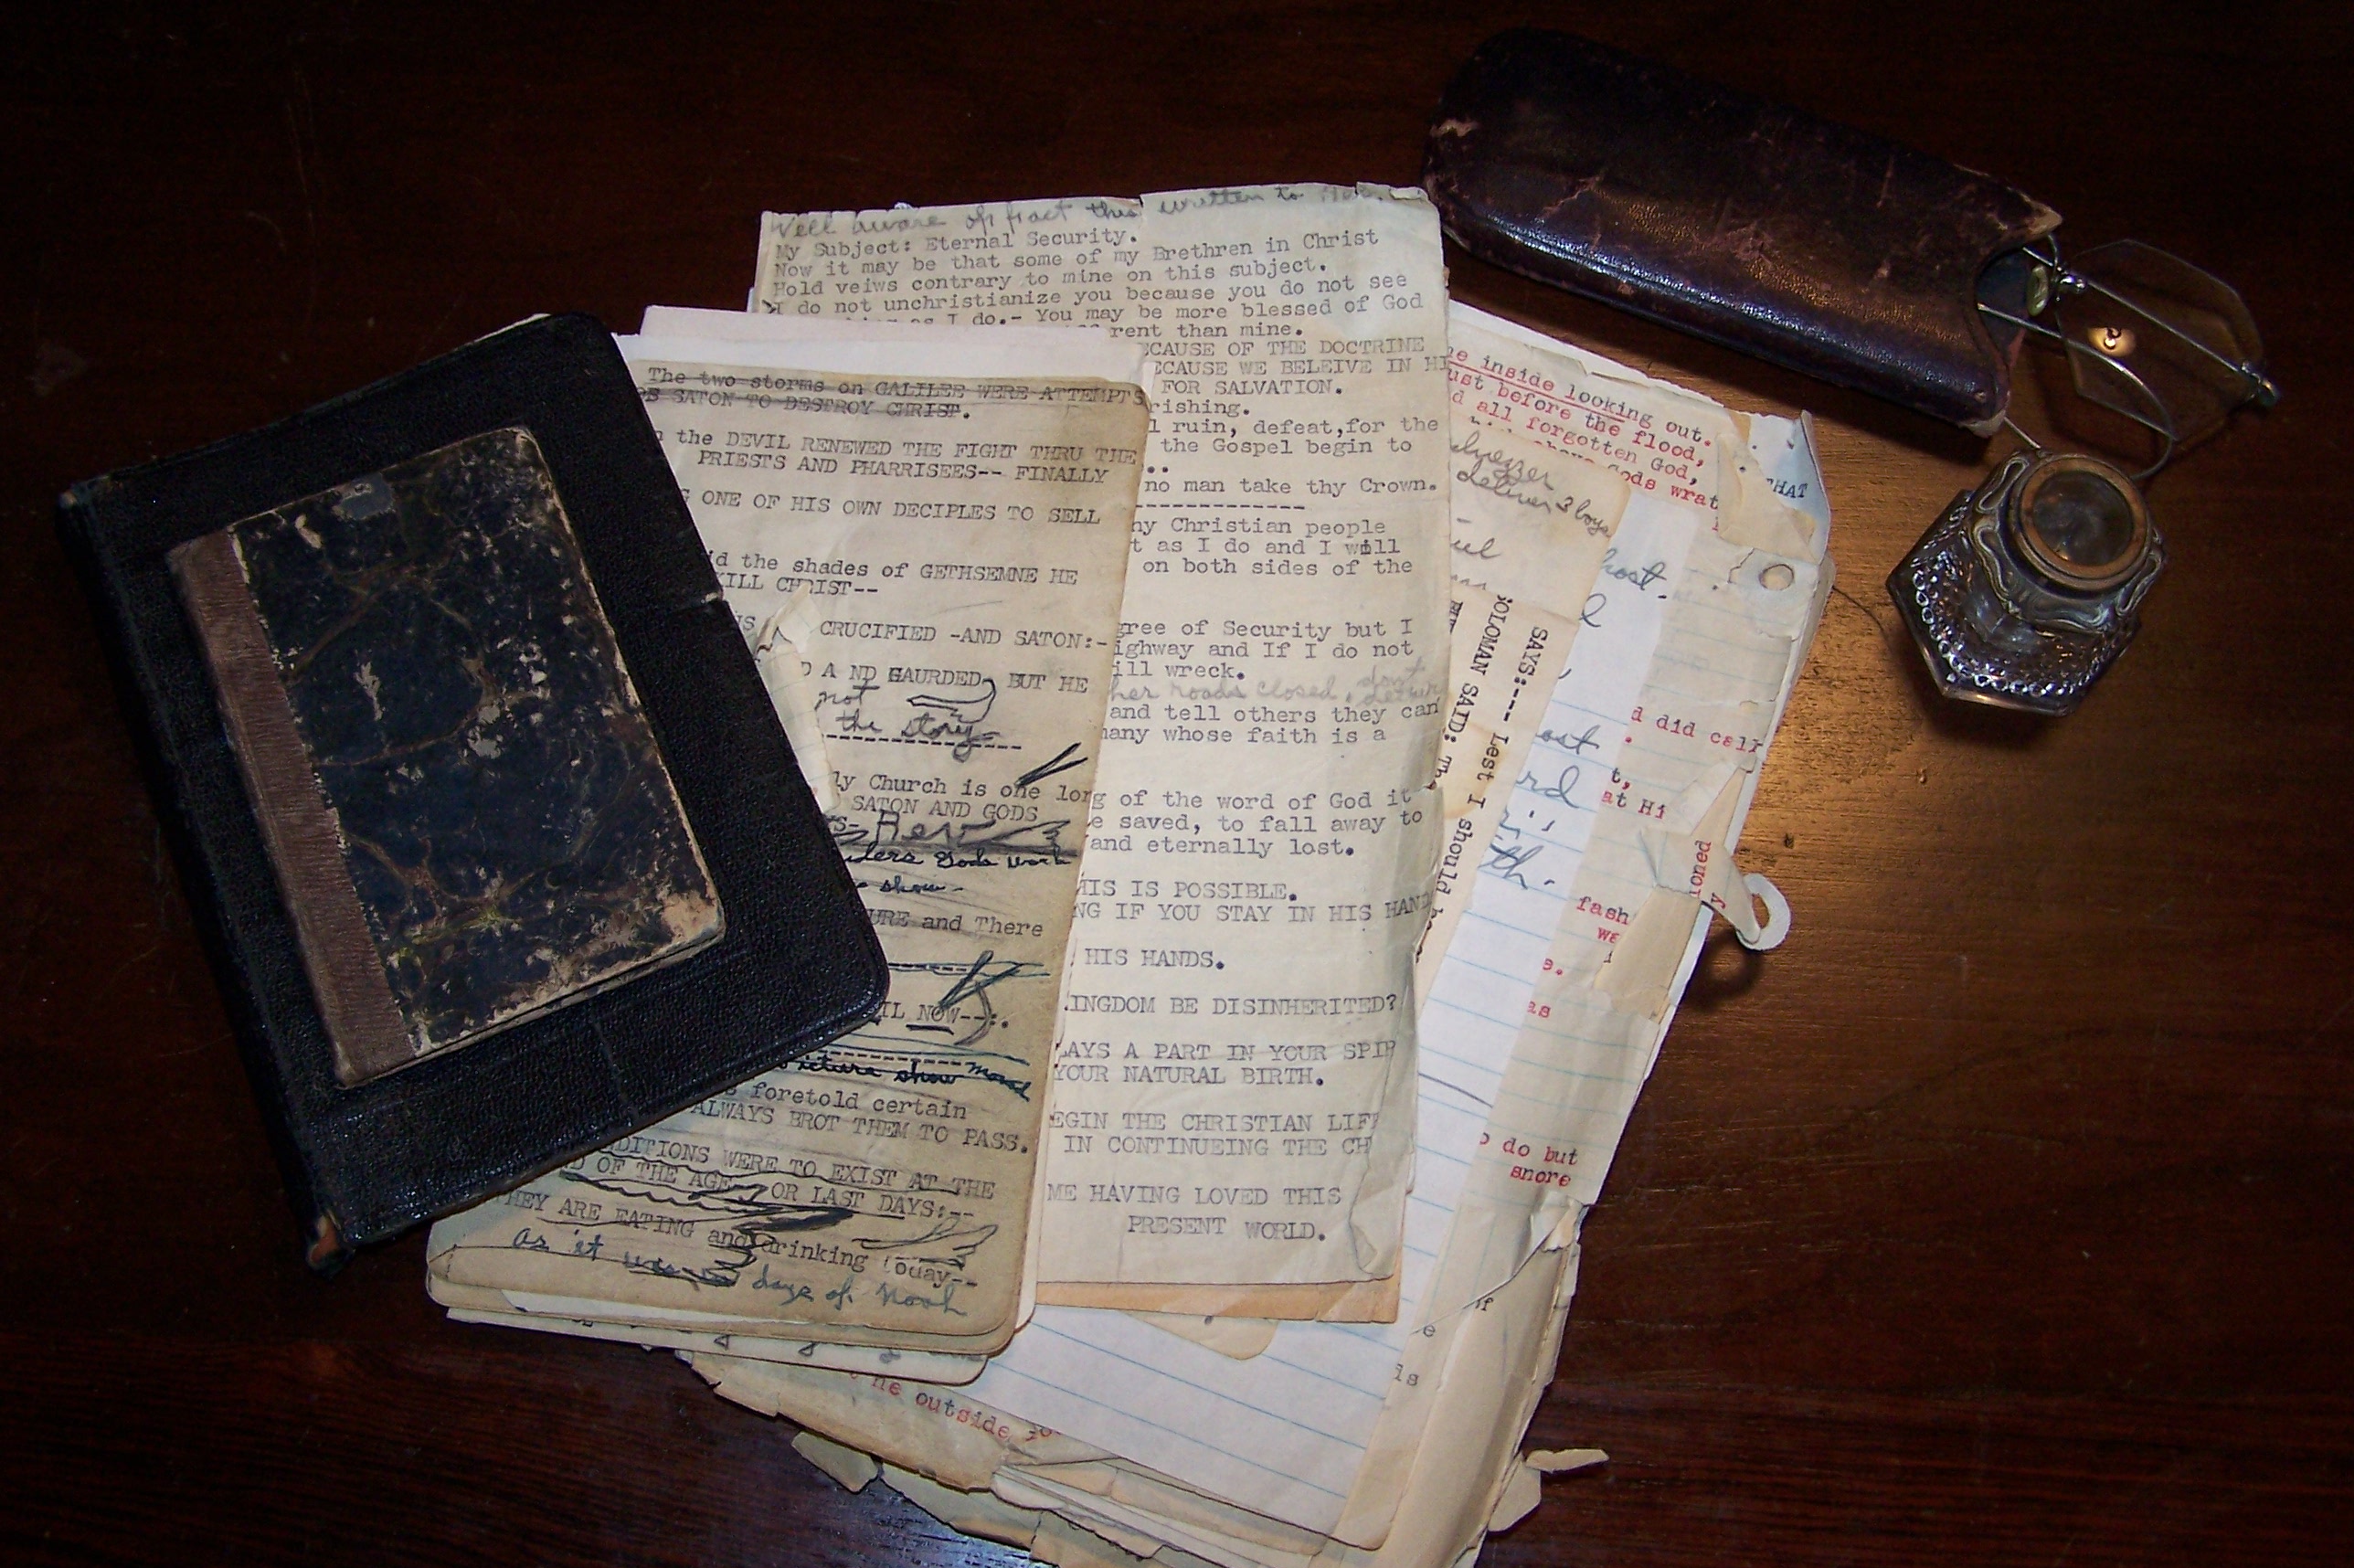 Well aware of fact this written to
My Subject: Eternal Security.
Now it may be that some of my Brethren in Christ
Hold veiws contrary to mine on this subject.
I do not unchristianize you because you do not see
as I do.- You may be more blessed of God
rent than mine.
ECAUSE OF THE DOCTRINE
ECAUSE WE BELEIVE IN HI
FOR SALVATION.
rishing.
l ruin, defeat,for the
the Gospel begin to
..
no man take thy Crown.
--------------
ny Christian people
t as I do and I will
on both sides of the
gree of Security but I
ighway and If I do not
ill wreck.
her roads closed, dont
and tell others they can
many whose faith is a
g of the word of God it
e saved, to fall away to
and eternally lost.
HIS IS POSSIBLE.
NG IF YOU STAY IN HIS HAND
HIS HANDS.
INGDOM BE DISINHERITED?
LAYS A PART IN YOUR SPIR
YOUR NATURAL BIRTH.
EGIN THE CHRISTIAN LIF
IN CONTINUEING THE CH
ME HAVING LOVED THIS
PRESENT WORLD.
The two storms on GALILEE WERE ATTEMPTS
SATON TO DESTROY CHRIST.
n the DEVIL RENEWED THE FIGHT THRU THE
PRIESTS AND PHARRISEES-- FINALLY
G ONE OF HIS OWN DECIPLES TO SELL
id the shades of GETHSEMNE HE
KILL CHRIST--
CRUCIFIED -AND SATON:-
D A ND GAURDED, BUT HE
not
the story
--------------
ly Church is one lon
SATON AND GODS
Rev
Gods work
show-
URE and There
IL NOW--:.
picture show
foretold certain
ALWAYS BROT THEM TO PASS.
DITIONS WERE TO EXIST AT THE
D OF THE AGE- OR LAST DAYS:--
THEY ARE EATING and drinking today--
as it was days of Noah
he inside looking out.
ust before the flood,
d all forgotten God,
Gods wrat
THAT
deliver 3 boys
ul
SAYS:--- Lest I should
SOLOMAN SAID: Th
host.
ost
rd
th.
d did call
t,
at Hi
ioned
y
fash
we
e.
as
o do but
snore
if
e
is
he outside,